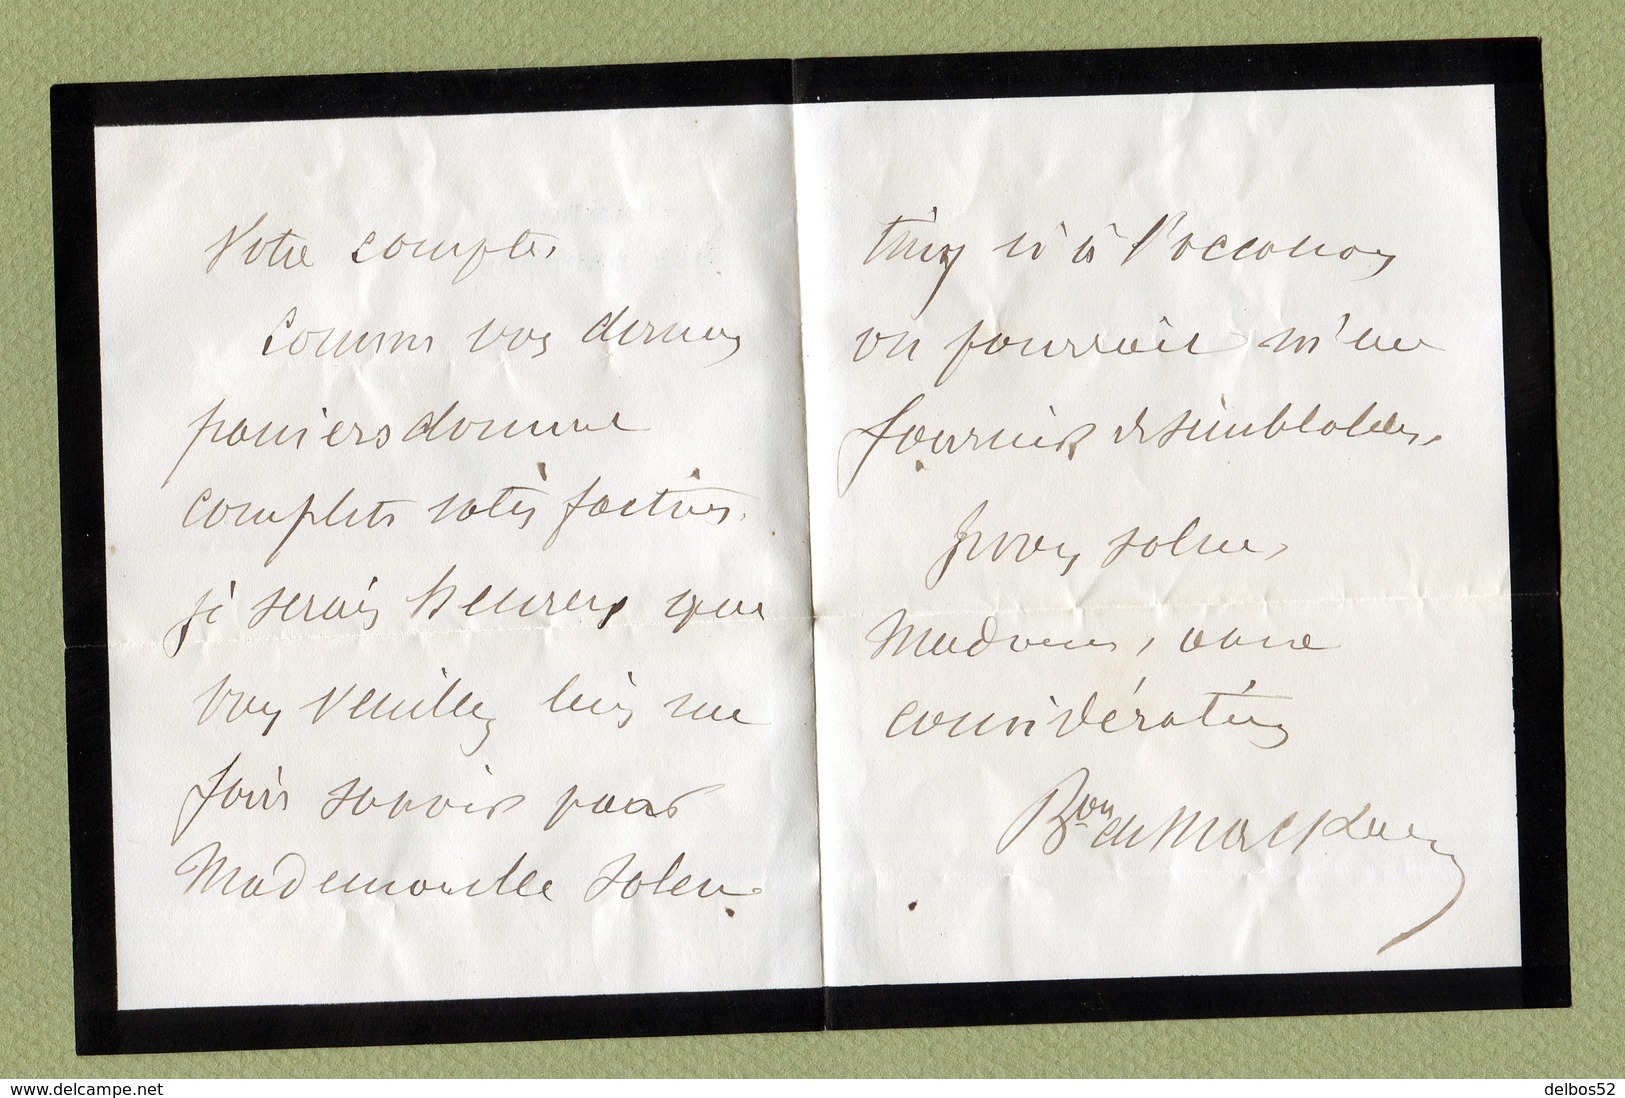 Votre compte.
Comme vos derniers
paniers donnent
complète satisfaction,
je serais heureux que
vous veuillez bien me
faire savoir par
Mademoiselle
si à l'occasion
on pourrait m'en
fournir de semblables.
Recevez
Madame, avec
considération
Bon de Mackau
www.delcampe.net
delbos52